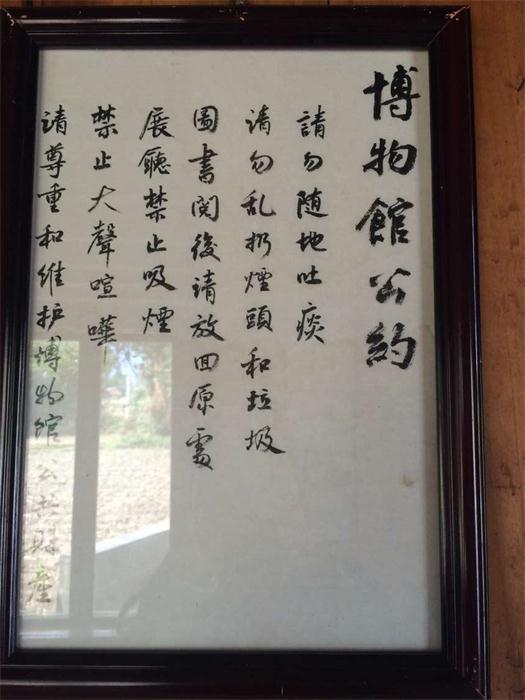 博物館公約
請勿随地吐痰
请勿乱扔煙頭和垃圾
圖書閱後请放回原處
展廳禁止吸煙
禁止大聲喧嘩
請尊重和维护博物館公共財產